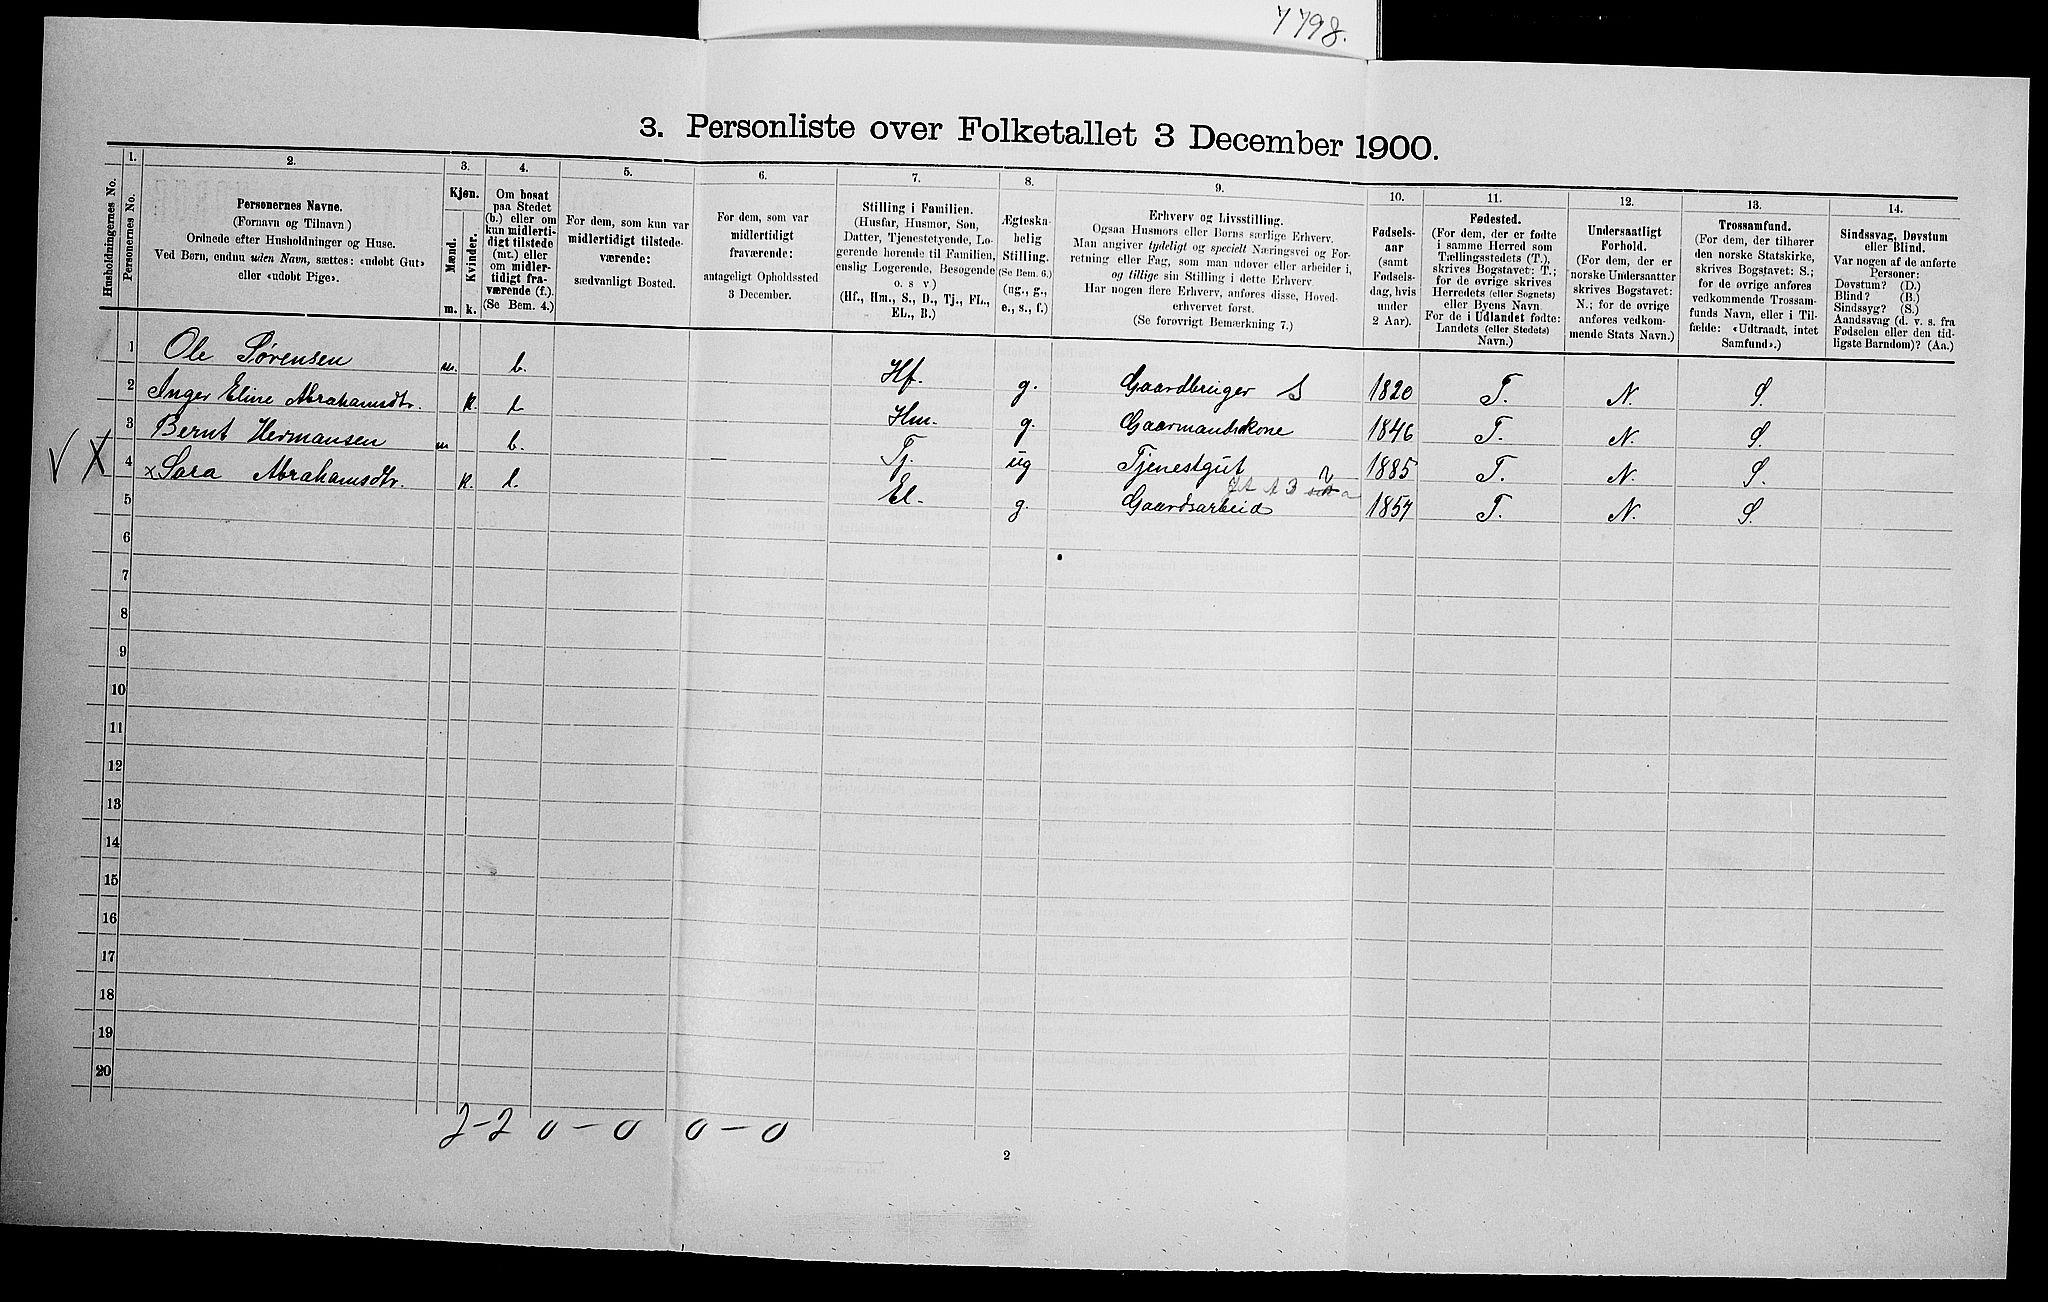 7798.
3. Personliste over Folketallet 3 December 1900.
Husholdningernes No.
1.
Personernes No.
2.
Personernes Navne.
(Fornavn og Tilnavn)
Ordnede efter Husholdninger og Huse.
Ved Børn, endnu uden Navn, sættes: «udøbt Gut»
eller «udøbt Pige».
3.
Kjøn.
Mænd.
Kvinder.
m. k.
4.
Om bosat
paa Stedet
(b.) eller om
kun midlerti-
digt tilstede
(mt.) eller
om midler-
tidigt fra-
værende (f.).
(Se Bem. 4.)
5.
For dem, som kun var
midlertidigt tilstede-
værende:
sædvanligt Bosted.
6.
For dem, som var
midlertidigt
fraværende:
antageligt Opholdssted
3 December.
7.
Stilling i Familien.
(Husfar, Husmor, Søn,
Datter, Tjenestetyende, Lo-
gerende hørende til Familien,
enslig Logerende, Besøgende
o. s v)
(Hf., Hm., S., D., Tj., FL.,
EL., B.)
8.
Ægteska-
belig
Stilling.
(Se Bem. 6.)
(ug., g.,
e., s., f.)
9.
Erhverv og Livsstilling.
Ogsaa Husmors eller Børns særlige Erhverv.
Man angiver tydeligt og specielt Næringsvei og For-
retning eller Fag, som man udøver eller arbeider i,
og tillige sin Stilling i dette Erhverv.
Har nogen flere Erhverv, anføres disse, Hoved-
erhvervet først.
(Se forøvrigt Bemærkning 7.)
10.
Fødsels-
aar
(samt
Fødsels-
dag, hvis
under
2 Aar).
11.
Fødested.
(For dem, der er fødte
i samme Herred som
Tællingsstedets (T.),
skrives Bogstavet: T.;
for de øvrige skrives
Herredets (eller Sognets)
eller Byens Navn
For de i Udlandet fødte:
Landets (eller Stedets)
Navn.)
12.
Undersaatligt
Forhold.
(For dem, der er
norske Undersaatter
skrives Bogstavet:
N.; for de øvrige
anføres vedkom-
mende Stats Navn.)
13.
Trossamfund.
(For dem, der tilhører
den norske Statskirke,
skrives Bogstavet: S.;
for de øvrige anføres
vedkommende Trossam-
funds Navn, eller i Til-
fælde: «Udtraadt, intet
Samfund».)
14.
Sindssvag, Døvstum
eller Blind.
Var nogen af de anførte
Personer:
Døvstum? (D.)
Blind? (B.)
Sindssyg? (S.)
Aandssvag (d. v. s. fra
Fødselen eller den tid-
ligste Barndom)? (Aa.)
1 Ole Sørensen m. b. Hf. g. Gaardbruger S 1820 T. N. S.
2 Inger Eline Abrahamsdtr. k. b Hm. g. Gaarmandskone 1846 T. N. S.
3 Bernt Hermansen m b. Tj. ug Tjenestgut 1885 T. N. S.
V X 4 x Sara Abrahamsdtr. k. b. El. g. Gaardsarbeid 1857 T. N. S.
5
6
7
8
9
10
11
12
13
14
15
16
17
18
19
20
2-2 0-0 0-0
2